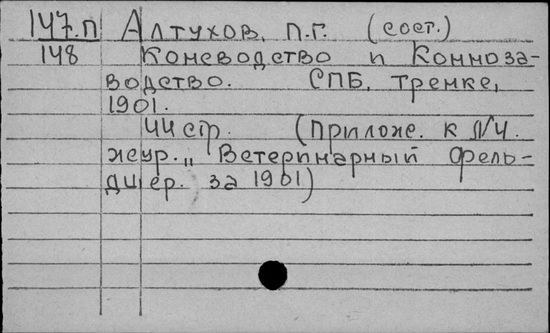 147.п Алтухов, П.Г. (сост.)
148 Коневодство и Коннеза-
водство. СПБ, Тренке,
1901.
44 стр. (Приложе. к №4.
жур. „ Ветеринарный Фель-
дшер. за 1901)